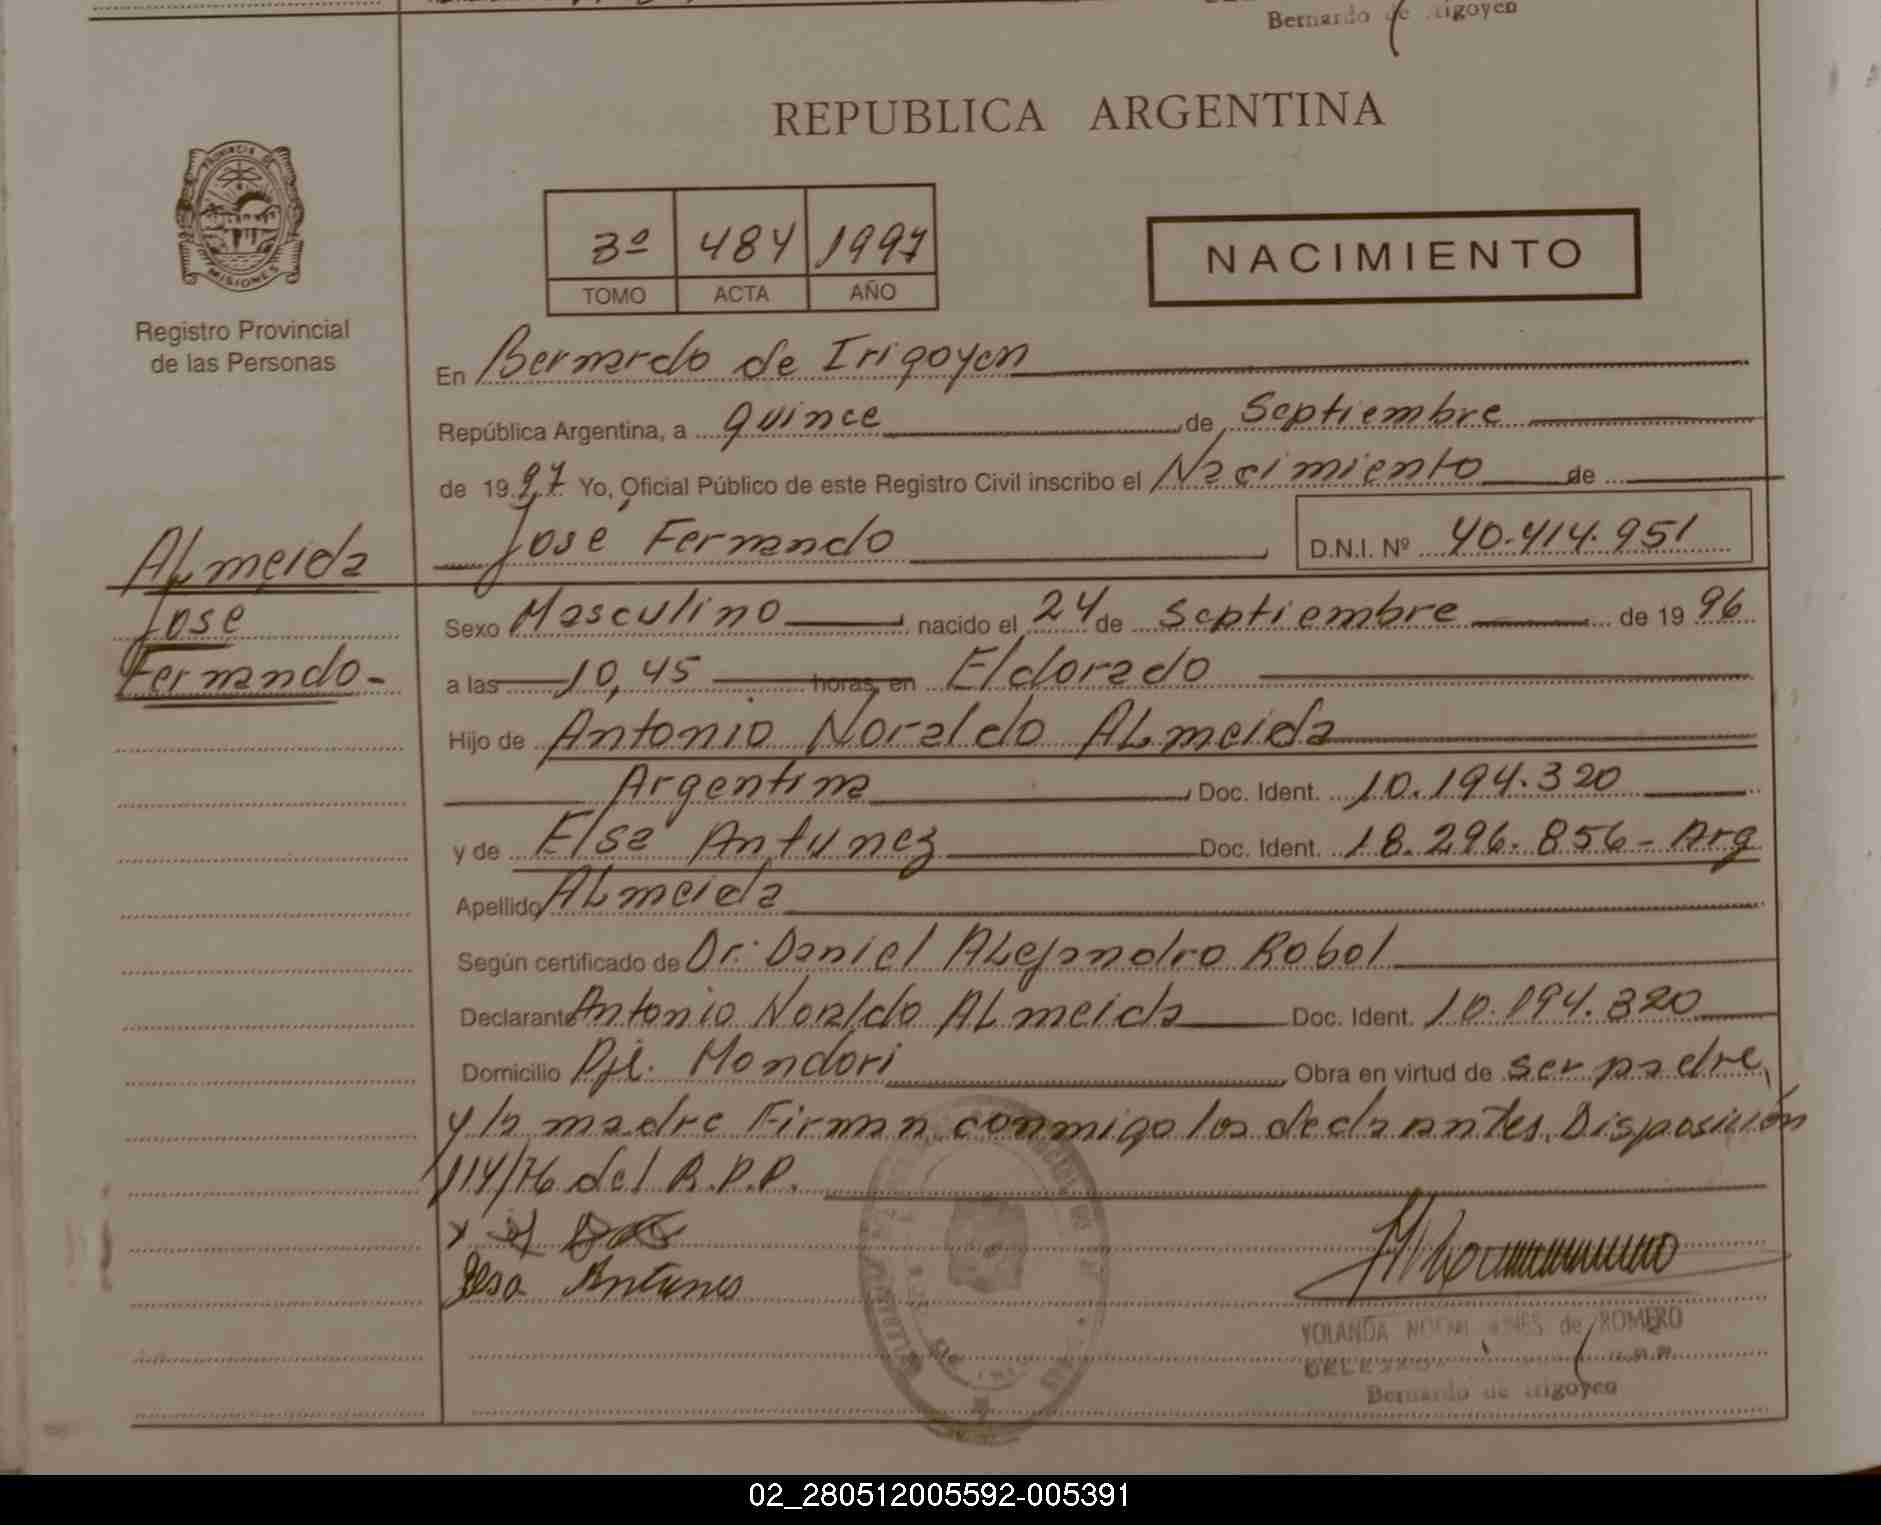 Bernardo de Irigoyen
REPUBLICA ARGENTINA
PROVINCIA DE
MISIONES
Registro Provincial
de las Personas
3º 484 1997
TOMO ACTA AÑO
NACIMIENTO
En Bernardo de Irigoyen
República Argentina, a quince de Septiembre
de 1997 Yo, Oficial Público de este Registro Civil inscribo el Nacimiento de
José Fernando D.N.I. Nº 40.414.951
ALmeida
Jose
Fernando-
Sexo Masculino nacido el 24 de Septiembre de 19 96
a las 10,45 horas, en Eldorado
Hijo de Antonio Noraldo ALmeida
Argentina Doc. Ident. 10.194.320
y de Elsa Antunez Doc. Ident. 18.296.856 - Arg
Apellido ALmeida
Según certificado de Dr: Daniel ALejandro Robol
Declarante Antonio Noraldo ALmeida Doc. Ident. 10.194.320
Domicilio Pje. Mondori Obra en virtud de ser padre,
y la madre Firman conmigo los declarantes. Disposición
114/76 del R.P.P.
Antunes
YOLANDA de ROMERO
Bernardo de Irigoyen
02_280512005592-005391